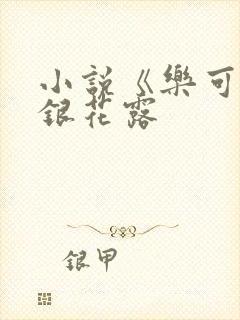 小說《樂可
銀花露
銀甲